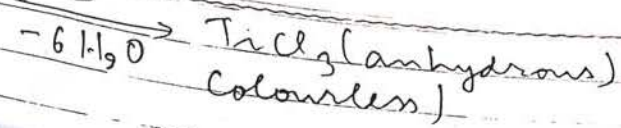 -6 H₂O → TiCl₃ (anhydrous)
Colourless)